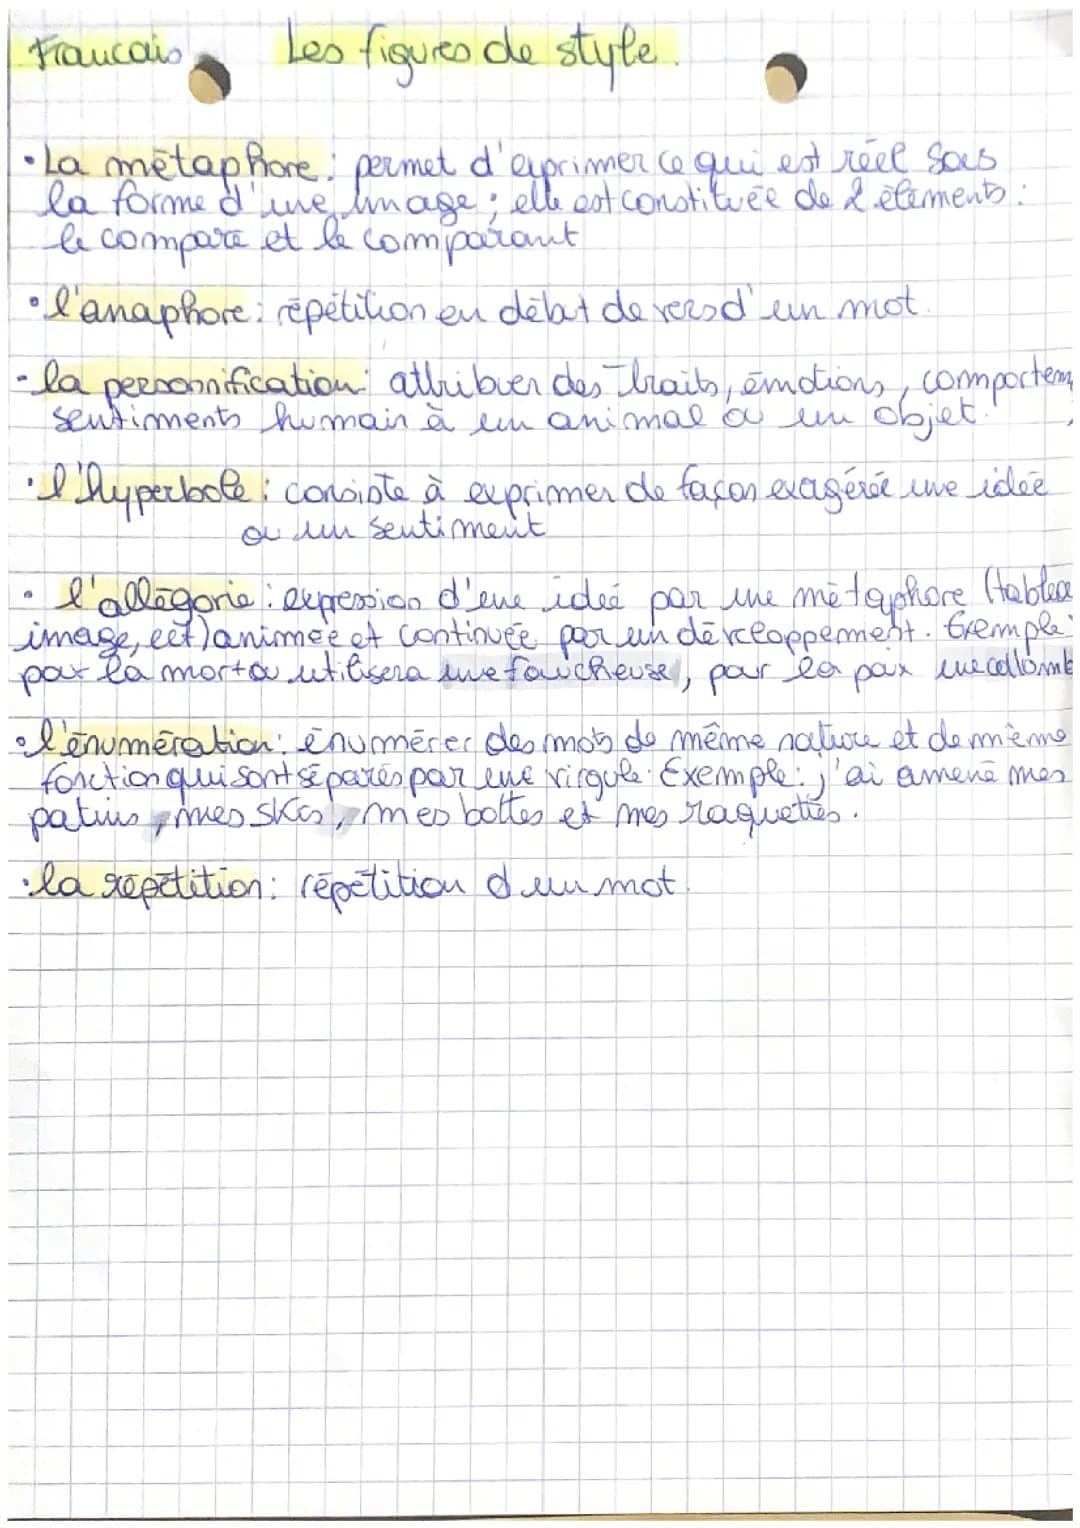 Francais Les figures de style.
• La métaphore : permet d'exprimer ce qui est réel sous
la forme d'une image ; elle est constituée de 2 éléments :
le comparé et le comparant
• l'anaphore : répétition en début de vers d'un mot.
- la personnification : attribuer des traits, émotions, comportem
sentiments humain à un animal ou un objet.
• l'hyperbole : consiste à exprimer de façon exagérée une idée
ou un sentiment
• l'allégorie : expression d'une idée par une métaphore (tablea
image, ect) animée et continuée par un développement. Exemple :
par la mort on utilisera une faucheuse, par la paix une collomb
• l'énumération : énumérer des mots de même nature et de même
fonction qui sont séparés par une virgule. Exemple : j'ai amené mes
patins, mes skis, mes bottes et mes raquettes.
• la répétition : répétition d'un mot.